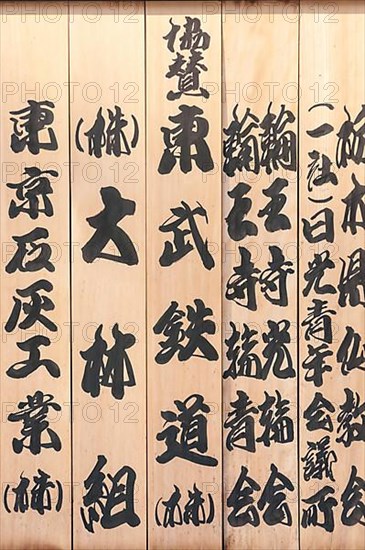 栃木県仏教会
(一社)日光青年会議所
輪王寺光輪会
輪王寺輪青会
協賛
東武鉄道(株)
(株)大林組
東京石灰工業(株)